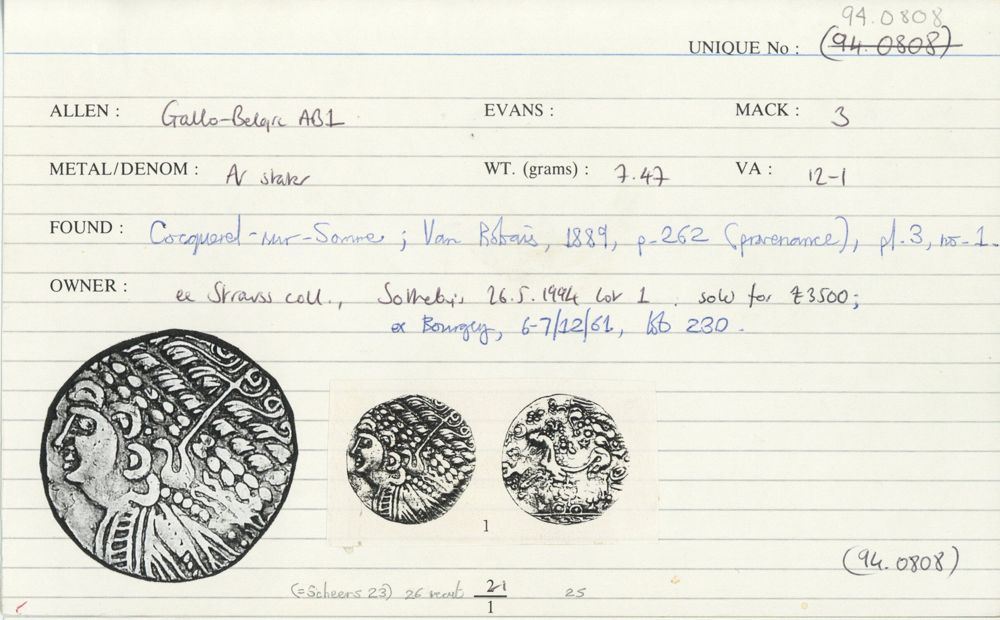 94.0808
UNIQUE No : (94.0808)
ALLEN : Gallo-Belgic AB1 EVANS : MACK : 3
METAL/DENOM : AV stater WT. (grams) : 7.47 VA : 12-1
FOUND : Cocquerel-sur-Somme ; Van Robais, 1889, p.262 (provenance), pl.3, no.1.
OWNER : ex Strauss coll., Sotheby's 26.5.1994 lot 1. sold for £3500;
ex Bourgey, 6-7/12/61, lot 230.
1
(94.0808)
(=Scheers 23) 26 21 25
1